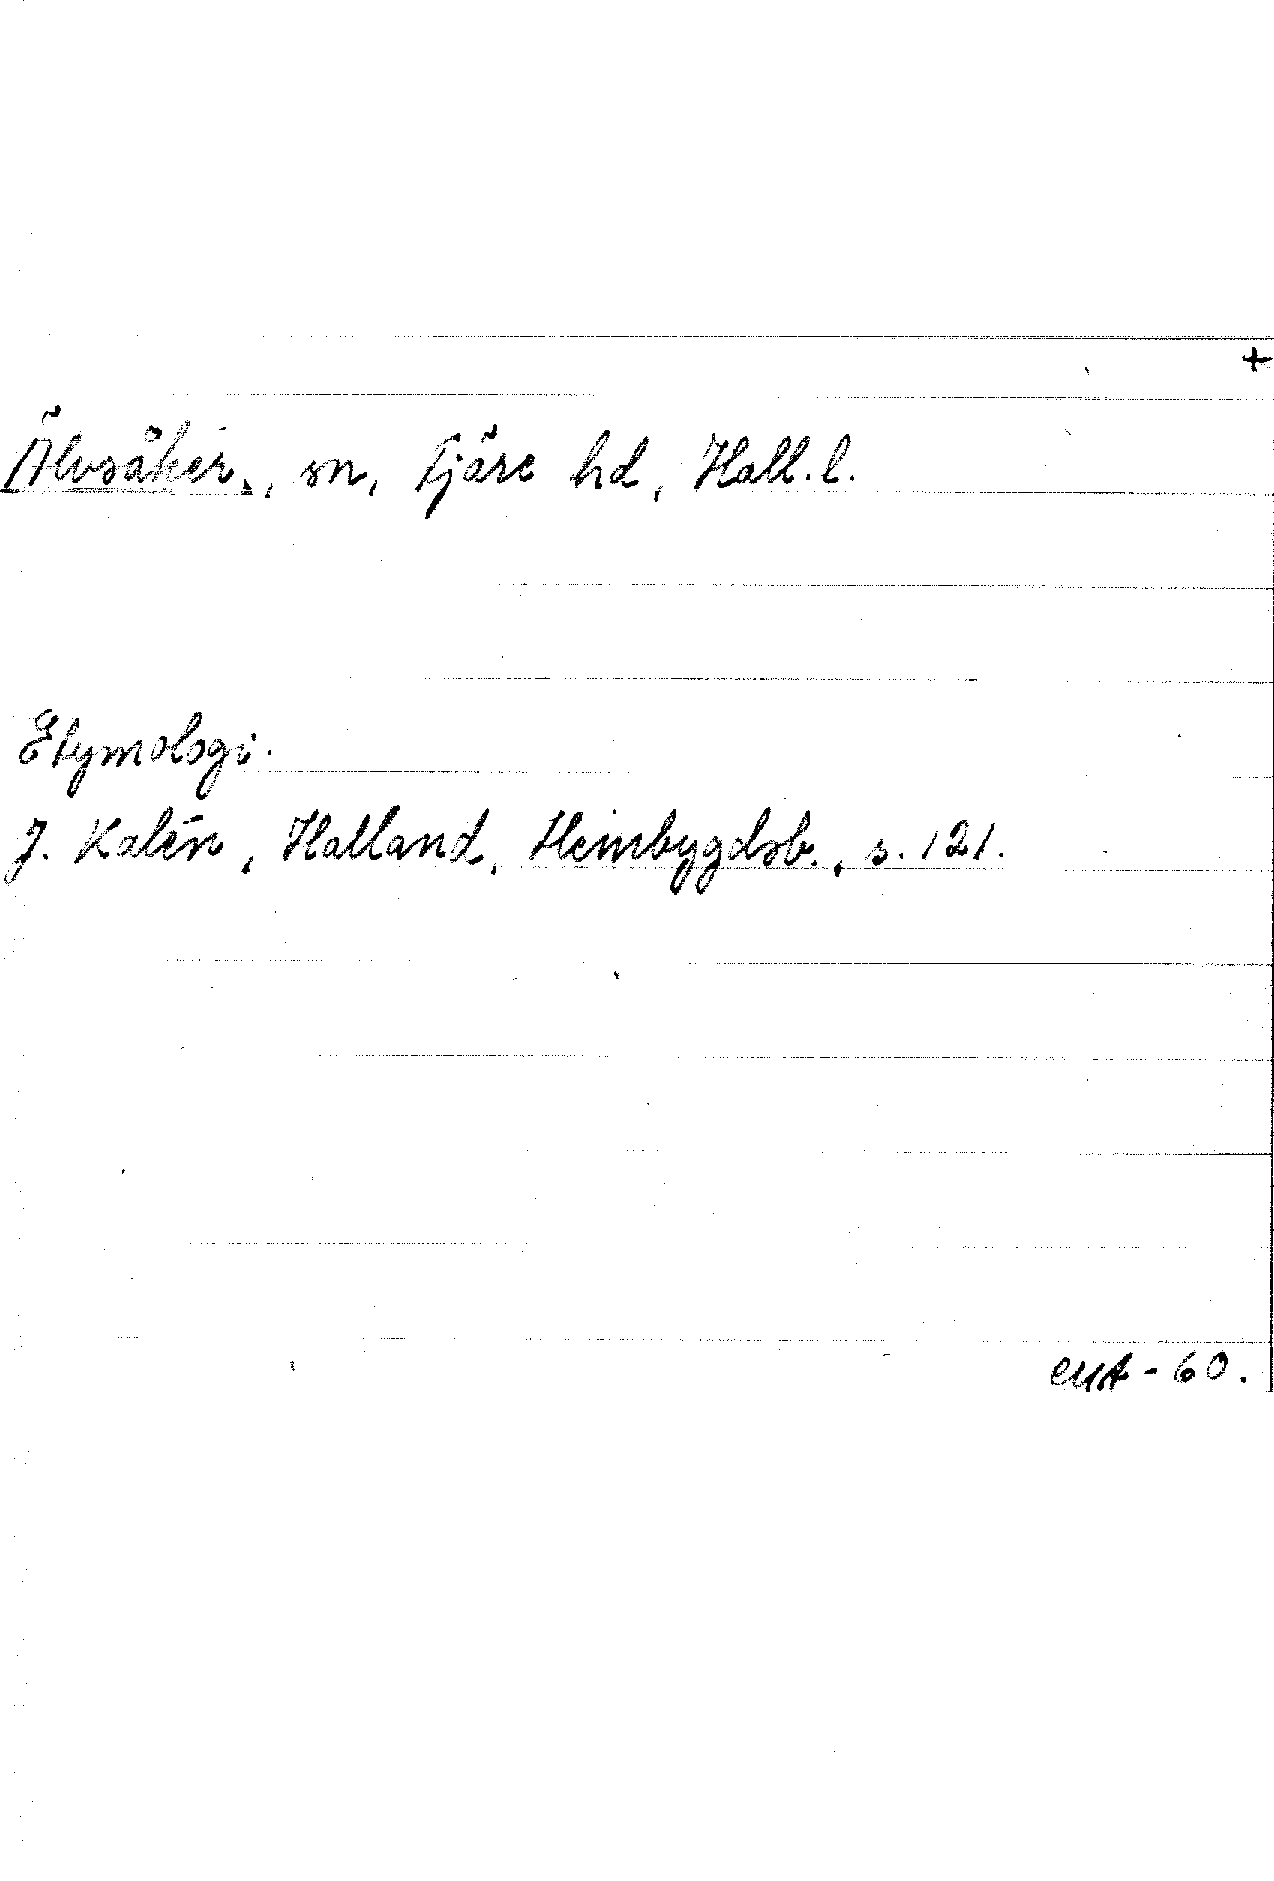 +
Älvsåker, sn, Fjäre hd, Hall. l.
Etymologi.
J. Kalén, Halland, Hembygdsb., s. 121.
EMA - 60.